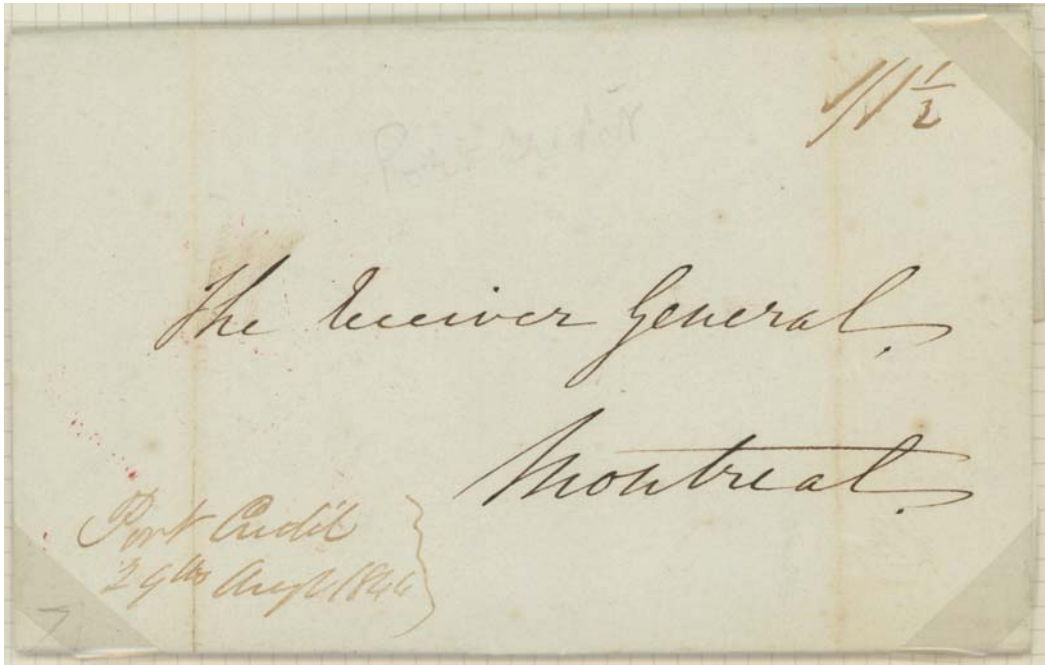 1/1 1/2
Port Credit
The Receiver General.
Montreal.
Port Credit
29th Augt 1844